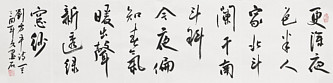 更深月
色半人
家北斗
闌干南
斗斜
今夜偏
知春氣
暖虫聲
新透綠
窗紗
劉方平詩